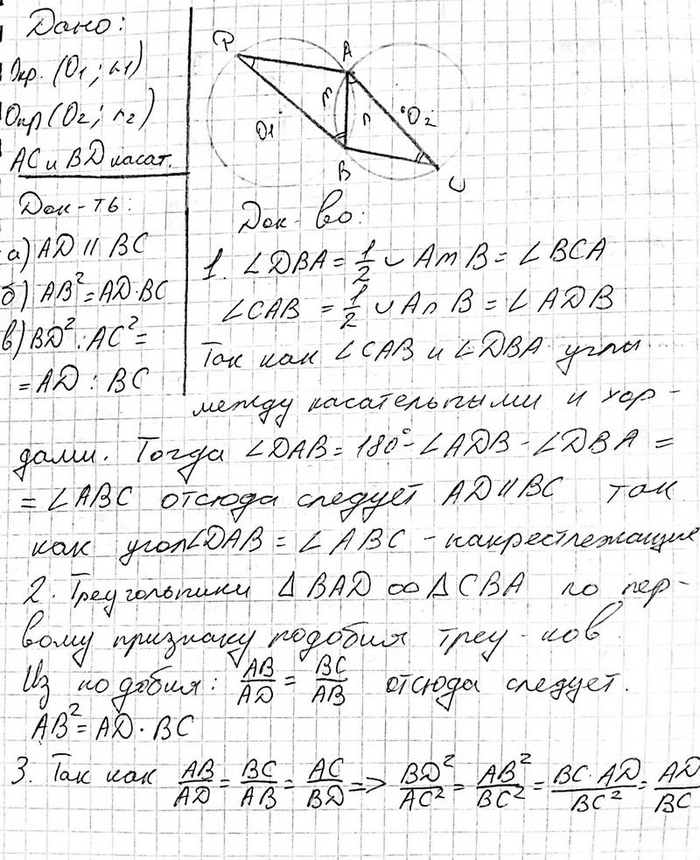 Дано:
Окр. (O1; r1)
Окр (O2; r2)
AC и BD касат.
Док-ть:
а) AD || BC
б) AB² = AD·BC
в) BD² : AC² =
= AD : BC
A
m
n
O1
O2
B
Док-во:
1. ∠DBA = 1/2 ∪ AmB = ∠BCA
∠CAB = 1/2 ∪ AnB = ∠ADB
Так как ∠CAB и ∠DBA углы
между касательными и хор-
дами. Тогда ∠DAB = 180° - ∠ADB - ∠DBA =
= ∠ABC отсюда следует AD || BC так
как угол ∠DAB = ∠ABC - накрестлежащие
2. Треугольники △BAD ∞ △CBA по пер-
вому признаку подобия треу-ков.
Из подобия: AB/AD = BC/AB отсюда следует.
AB² = AD · BC
3. Так как AB/AD = BC/AB = AC/BD => BD²/AC² = AB²/BC² = BC·AD/BC² = AD/BC